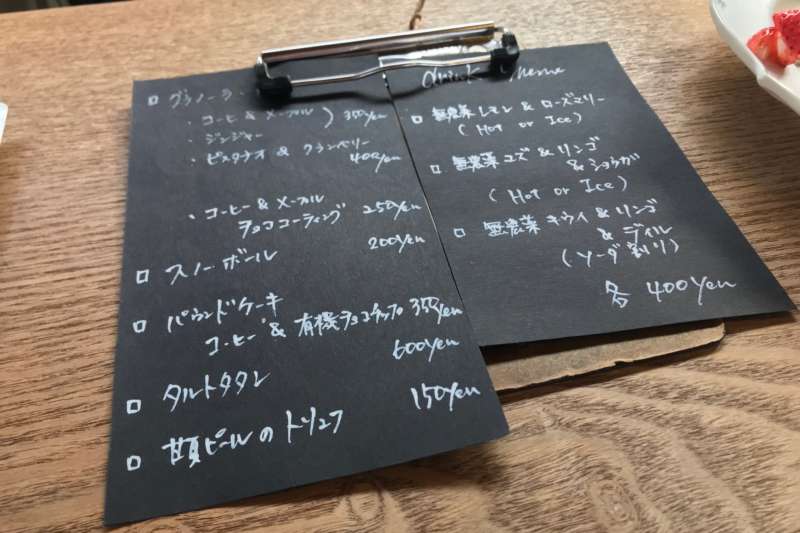 グラノーラ
・コーヒー & メープル
・ジンジャー
350yen
・ピスタチオ & クランベリー
400yen
・コーヒー & メープル
チョココーティング 250yen
スノーボール 200yen
パウンドケーキ
コーヒー & 有機チョコチップ 350yen
タルトタタン 600yen
甘夏ピールのトリュフ 150yen
drink menu
無農薬 レモン & ローズマリー
(Hot or Ice)
無農薬 ユズ & リンゴ
& ショウガ
(Hot or Ice)
無農薬 キウイ & リンゴ
& ディル
(ソーダ割り)
各 400yen